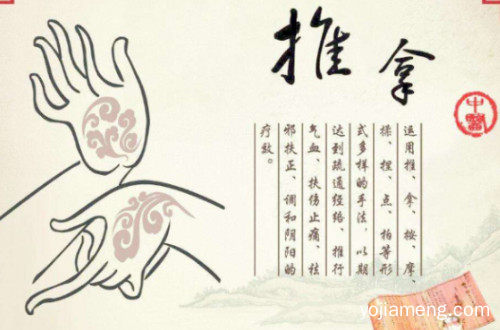 推拿
中醫
运用推、拿、按、摩、
揉、捏、点、拍等形
式多样的手法，以期
达到疏通经络、推行
气血、扶伤止痛、祛
邪扶正、调和阴阳的
疗效。
yojiameng.com